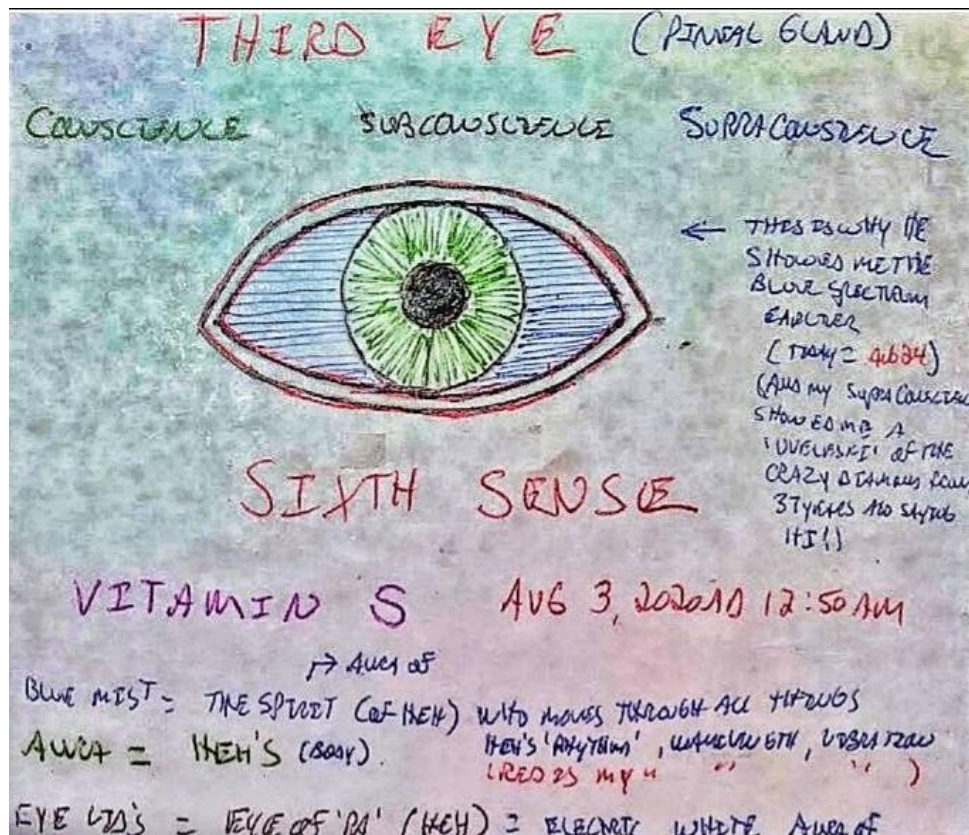 THIRD EYE (PINEAL GLAND)
CONSCIENCE SUBCONSCIENCE SUPRACONSCIENCE
← THIS IS WHY HE
SHOWED ME THE
BLUE SPECTRUM
EARLIER
(TODAY =
(AND MY SUPRACONSCIENCE
SHOWED ME A
OF THE
CRAZY DIAMOND FROM
37 YEARS AGO SAYING
HI!)
SIXTH SENSE
VITAMIN S AUG 3, 2020AD 12:50 AM
↱ AURA OF
BLUE MIST = THE SPIRIT (OF HEH) WHO MOVES THROUGH ALL THINGS
AURA = HEH'S (BODY). HEH'S 'RHYTHM', WAVELENGTH, VIBRATION
(RED IS MY " " " )
EYE LID'S = EYE OF 'RA' (HEH) = ELECTRIC WHITE AURA OF